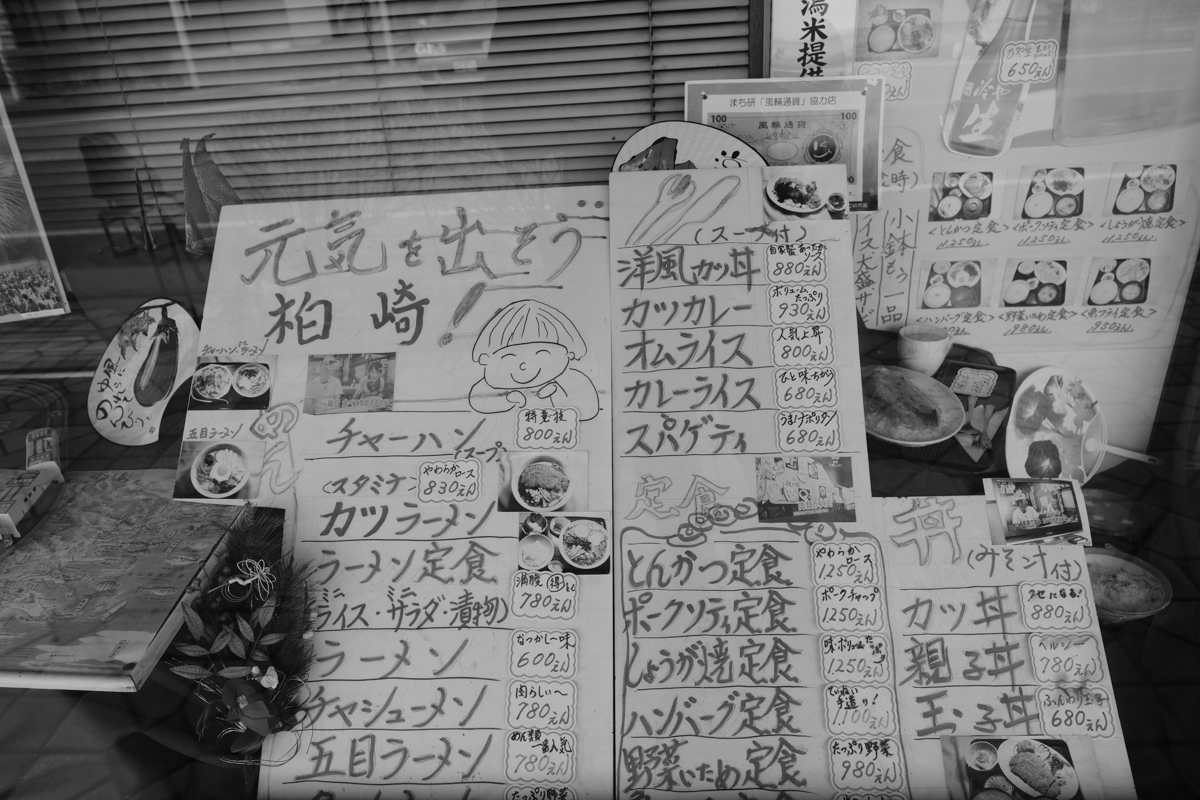 元気を出そう
柏崎!
チャーハン・ラーメン
五目ラーメン
チャーハン(スープ)
特意技
800えん
〈スタミナ〉
やわらかロース
830えん
カツラーメン
ラーメン定食
(ミニライス・ミニサラダ・漬物)
満腹 得
780えん
ラーメン
なつかし〜味
600えん
チャシューメン
肉らしい〜
780えん
五目ラーメン
めん類
一番人気
780えん
たっぷり野菜
(スープ付)
洋風カツ丼
自家製あったか
ソース
880えん
カツカレー
ボリューム
たっぷり
930えん
オムライス
人気上昇
800えん
カレーライス
ひと味ちがう
680えん
スパゲティ
うま!ナポリタン
680えん
定食
とんかつ定食
やわらか
ロース
1250えん
ポークソティ定食
ポークチャップ
1250えん
しょうが焼定食
1250えん
ハンバーグ定食
ていねい
手造り!
1,100えん
野菜いため定食
たっぷり野菜
980えん
丼
(みそ汁付)
カツ丼
クセになる!
880えん
親子丼
ヘルシー
780えん
玉子丼
ふんわり玉子
680えん
まち研「風輪通貨」協力店
100
100
風輪通貨
潟米提供
650えん
生
小鉢もう一品
<とんかつ定食>
1250えん
<ポークソティ定食>
1250えん
<しょうが焼定食>
1250えん
<ハンバーグ定食>
<野菜いため定食>
980えん
<魚フライ定食>
950えん